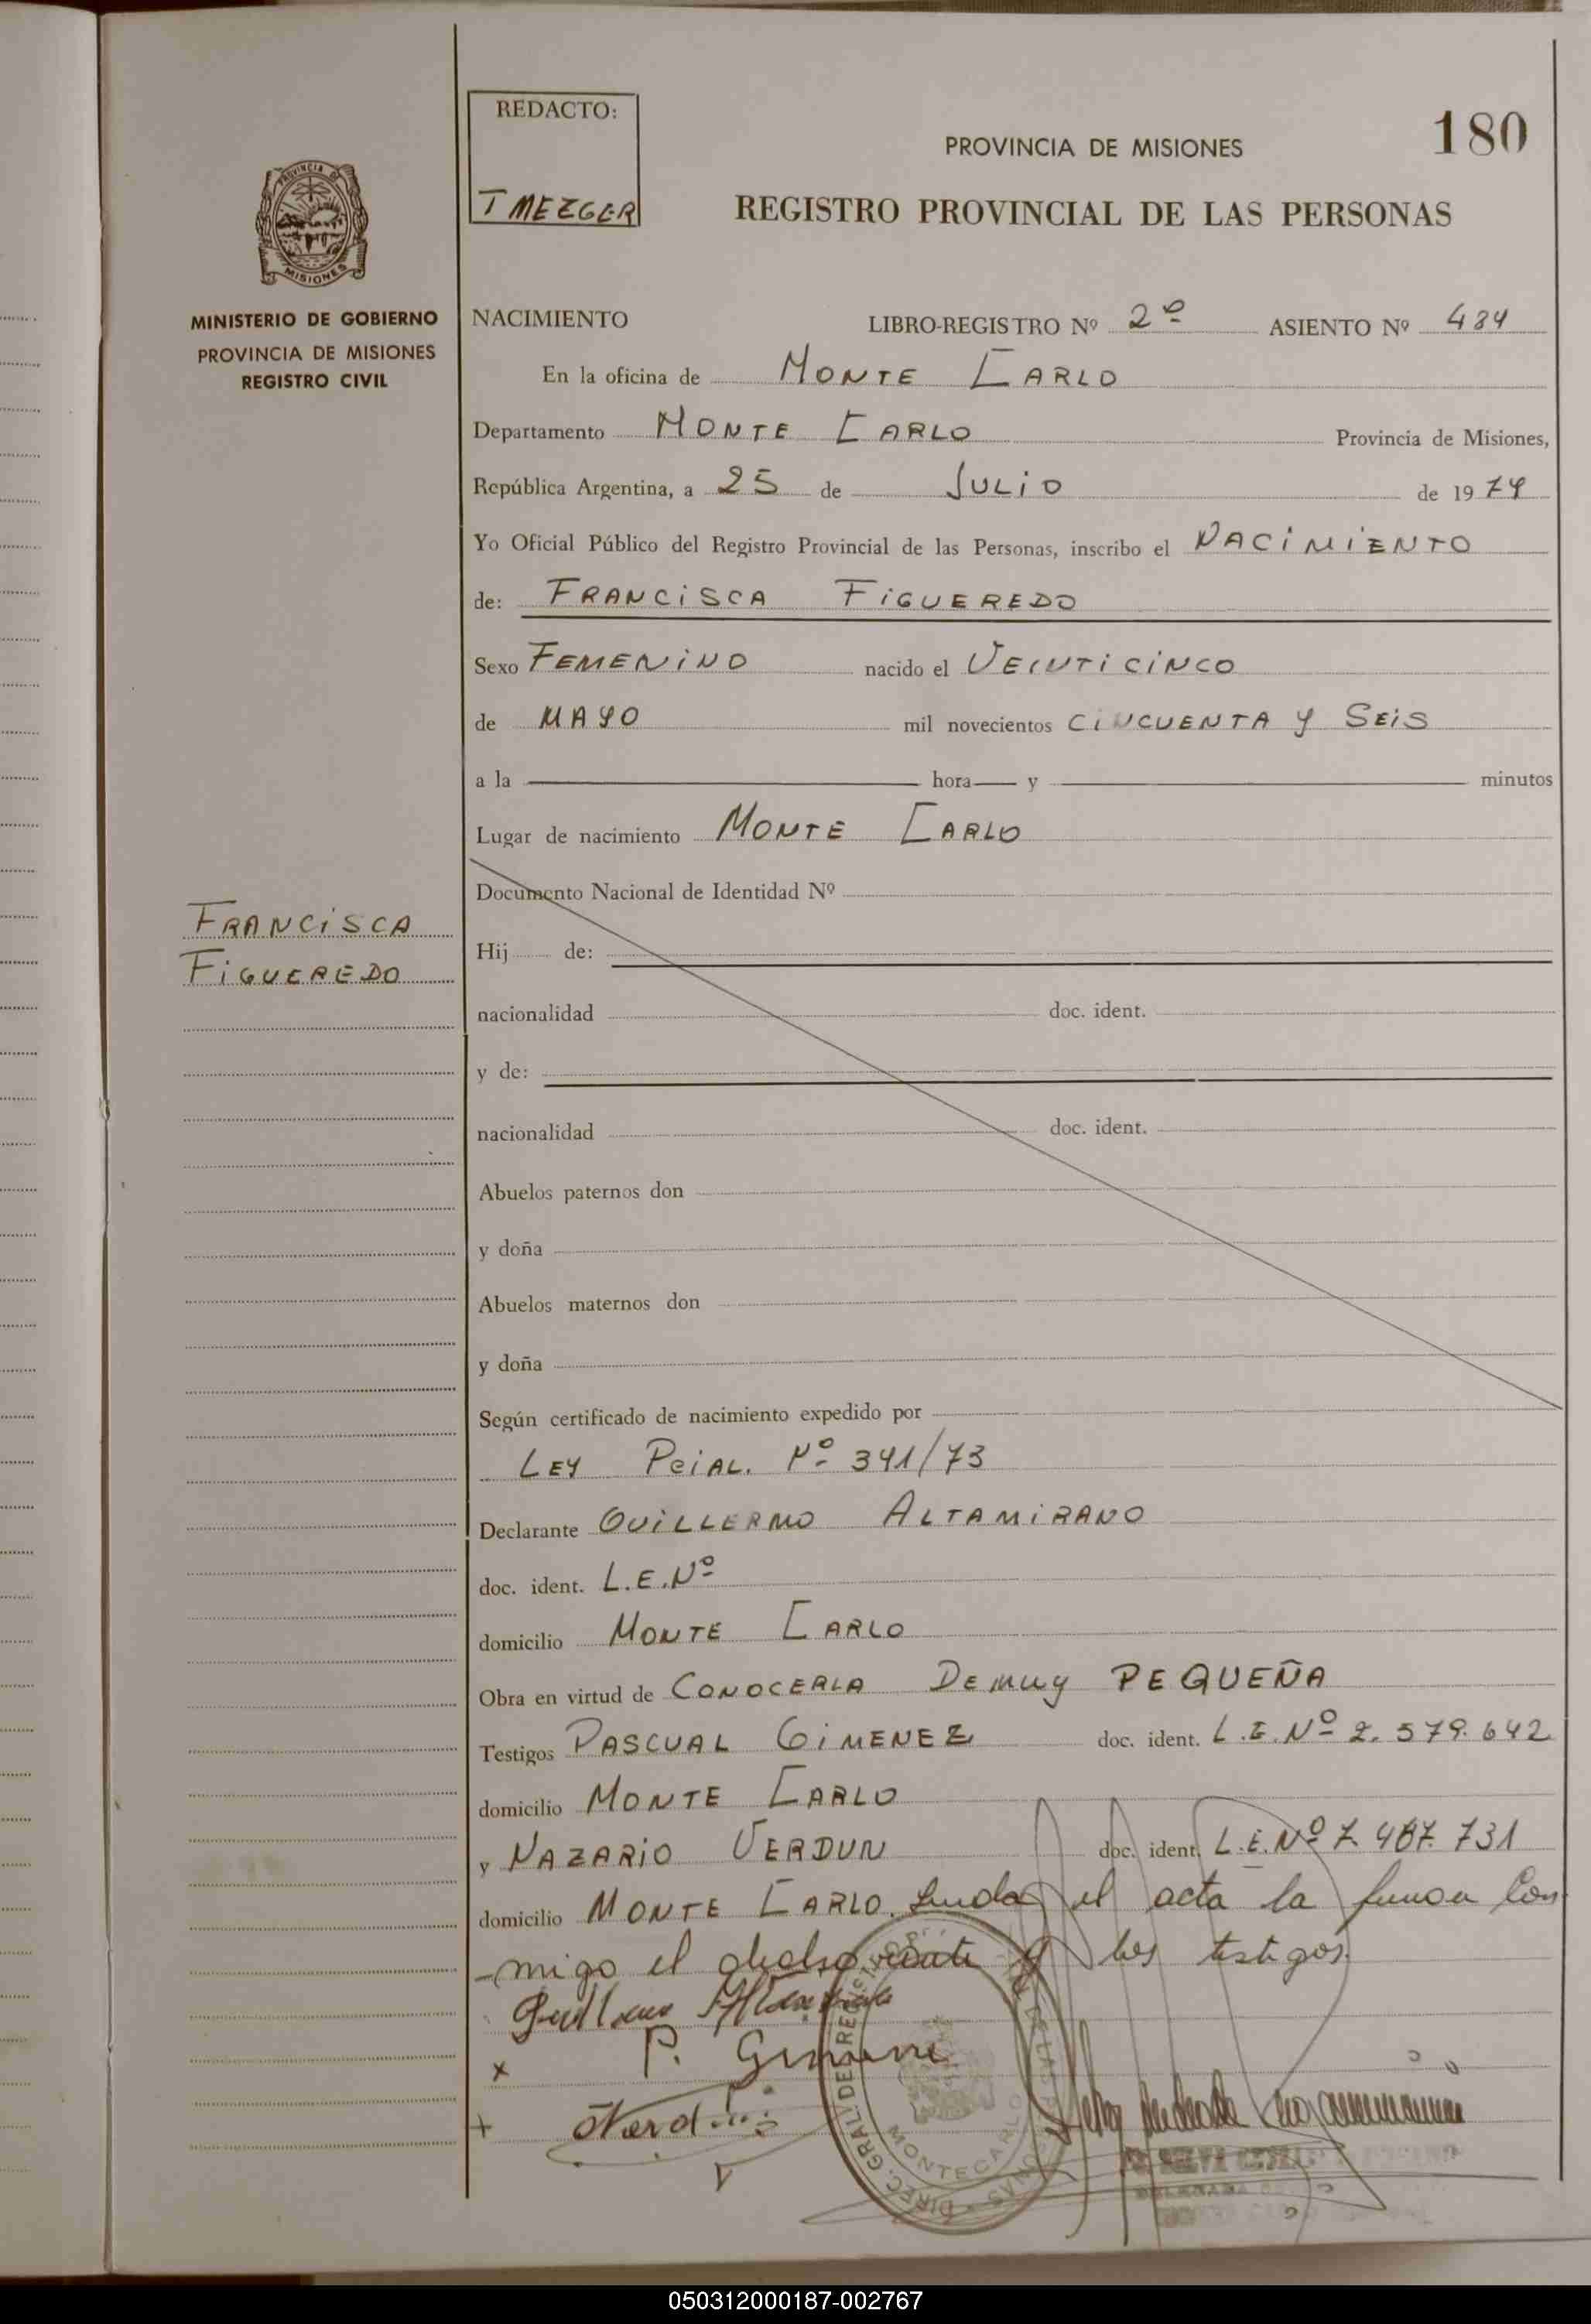 REDACTO:
T MEZGER
180
PROVINCIA DE MISIONES
REGISTRO PROVINCIAL DE LAS PERSONAS
PROVINCIA DE
MISIONES
MINISTERIO DE GOBIERNO
PROVINCIA DE MISIONES
REGISTRO CIVIL
NACIMIENTO LIBRO-REGISTRO Nº 2º ASIENTO Nº 484
En la oficina de MONTE CARLO
Departamento MONTE CARLO Provincia de Misiones,
República Argentina, a 25 de JULIO de 1974
Yo Oficial Público del Registro Provincial de las Personas, inscribo el NACIMIENTO
de: FRANCISCA FIGUEREDO
Sexo FEMENINO nacido el VEINTICINCO
de MAYO mil novecientos CINCUENTA Y SEIS
a la hora y minutos
Lugar de nacimiento MONTE CARLO
Documento Nacional de Identidad Nº
FRANCISCA
FIGUEREDO
Hij de:
nacionalidad doc. ident.
y de:
nacionalidad doc. ident.
Abuelos paternos don
y doña
Abuelos maternos don
y doña
Según certificado de nacimiento expedido por
LEY PCIAL. Nº 341/73
Declarante GUILLERMO ALTAMIRANO
doc. ident. L.E.Nº
domicilio MONTE CARLO
Obra en virtud de CONOCERLA DE MUY PEQUEÑA
Testigos PASCUAL GIMENEZ doc. ident. L.E.Nº 2.579.642
domicilio MONTE CARLO
y NAZARIO VERDUN doc. ident. L.E.Nº 7.487.731
domicilio MONTE CARLO. Leida el acta la firman con
migo el los testigos.
P.
MONTECARLO
050312000187-002767